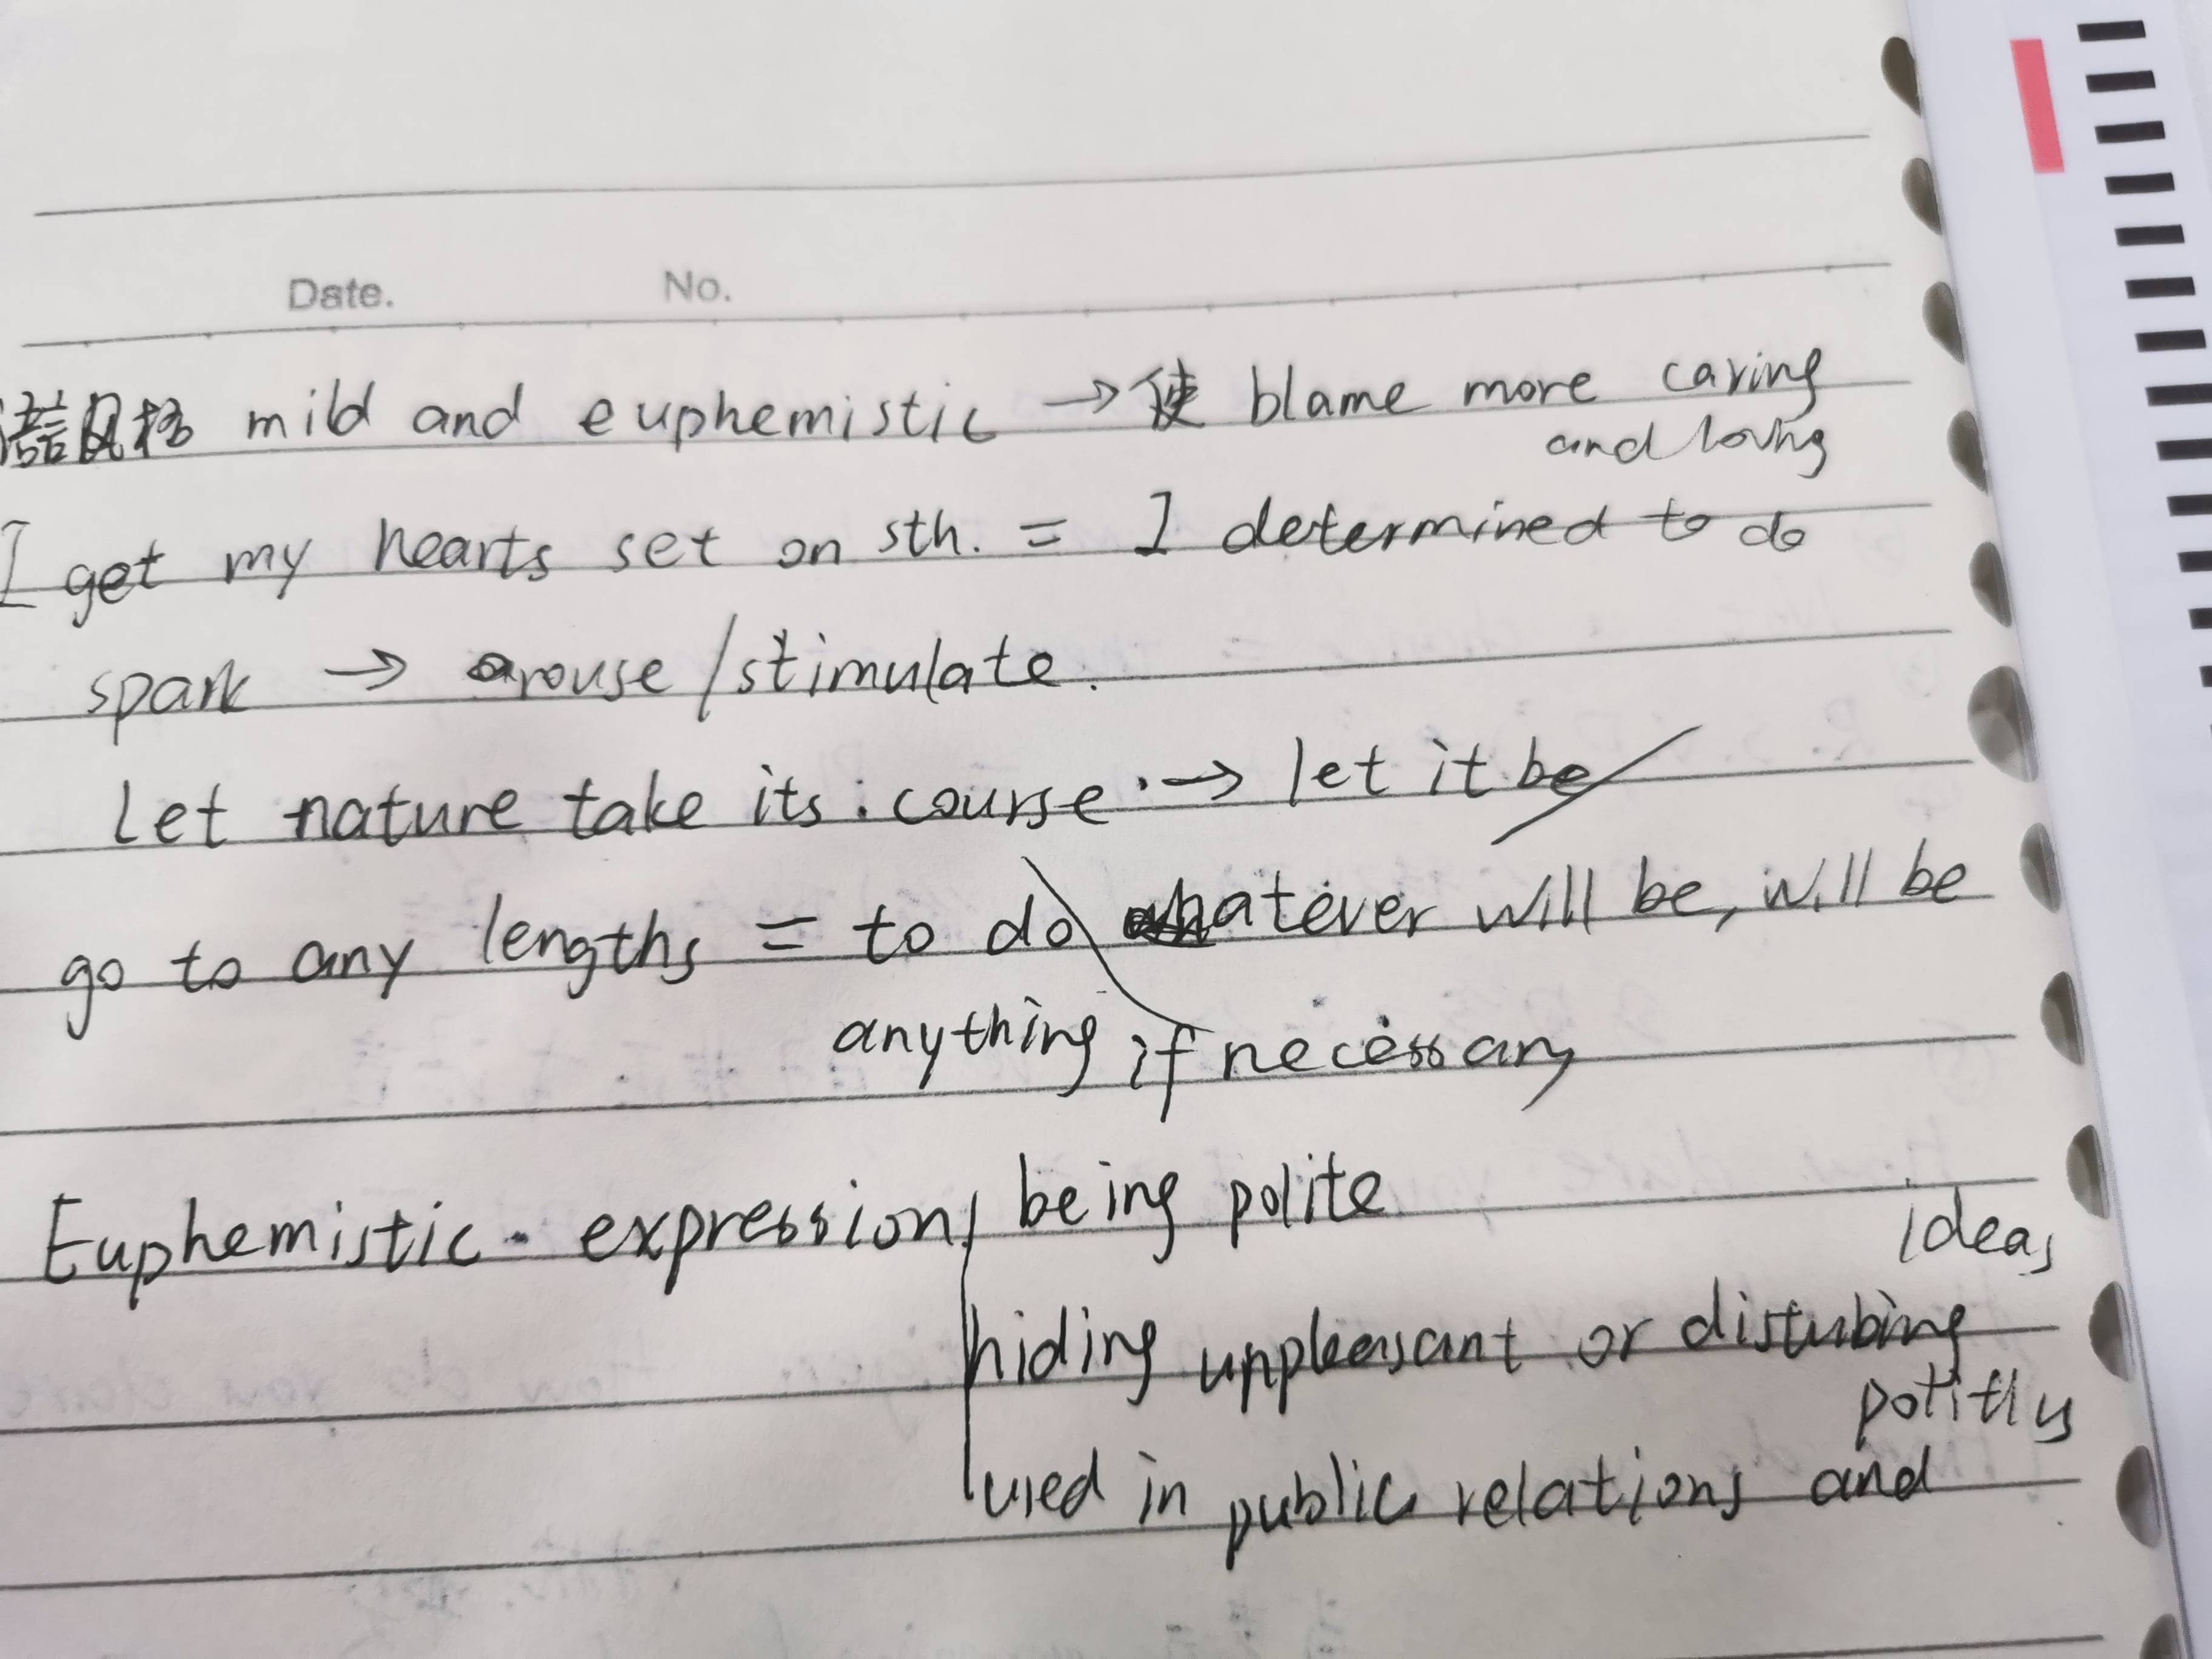 Date. No.
语言风格 mild and euphemistic → 使 blame more caring
and loving
I get my hearts set on sth. = I determined to do
spark → arouse/stimulate.
Let nature take its course. → let it be
go to any lengths = to do whatever will be, will be
anything if necessary
Euphemistic expressions being polite
ideas
hiding unpleasant or disturbing
politlys
used in public relations and